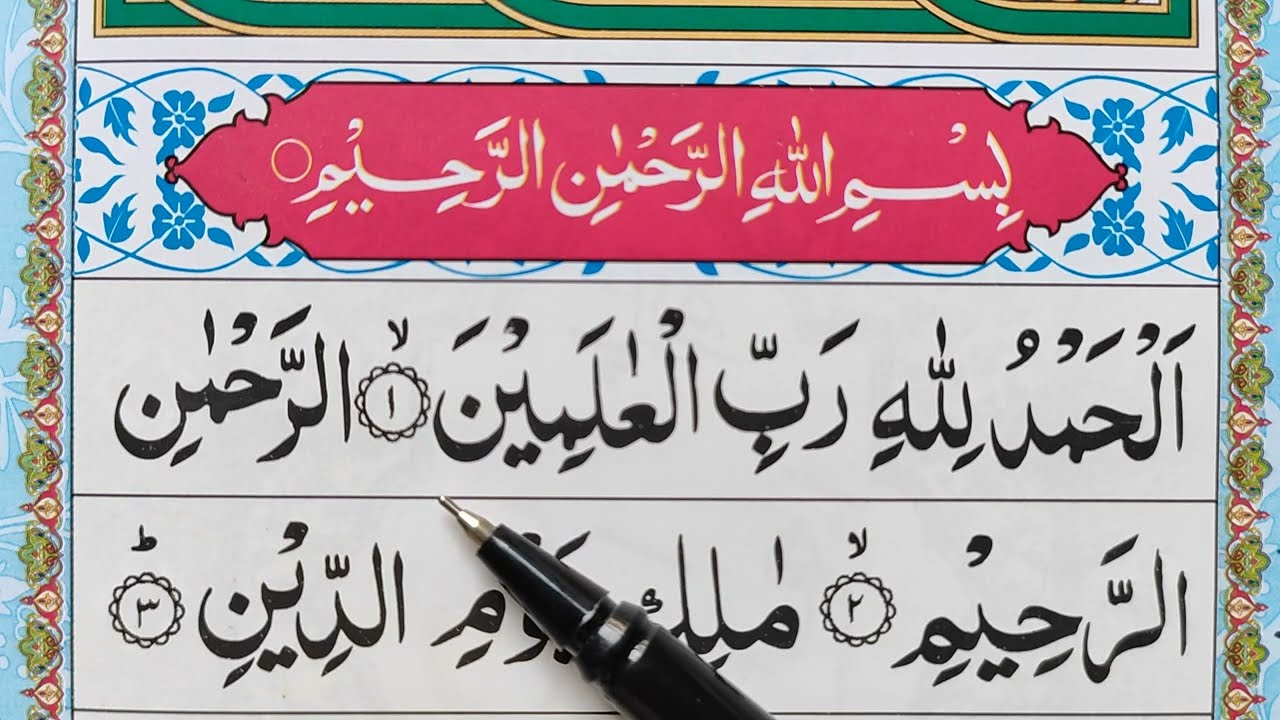 بِسْمِ اللّٰهِ الرَّحْمٰنِ الرَّحِيْمِ ○
اَلْحَمْدُ لِلّٰهِ رَبِّ الْعٰلَمِيْنَ ۙ﴿١﴾ الرَّحْمٰنِ
الرَّحِيْمِ ۙ﴿٢﴾ مٰلِكِ يَوْمِ الدِّيْنِ ؕ﴿٣﴾